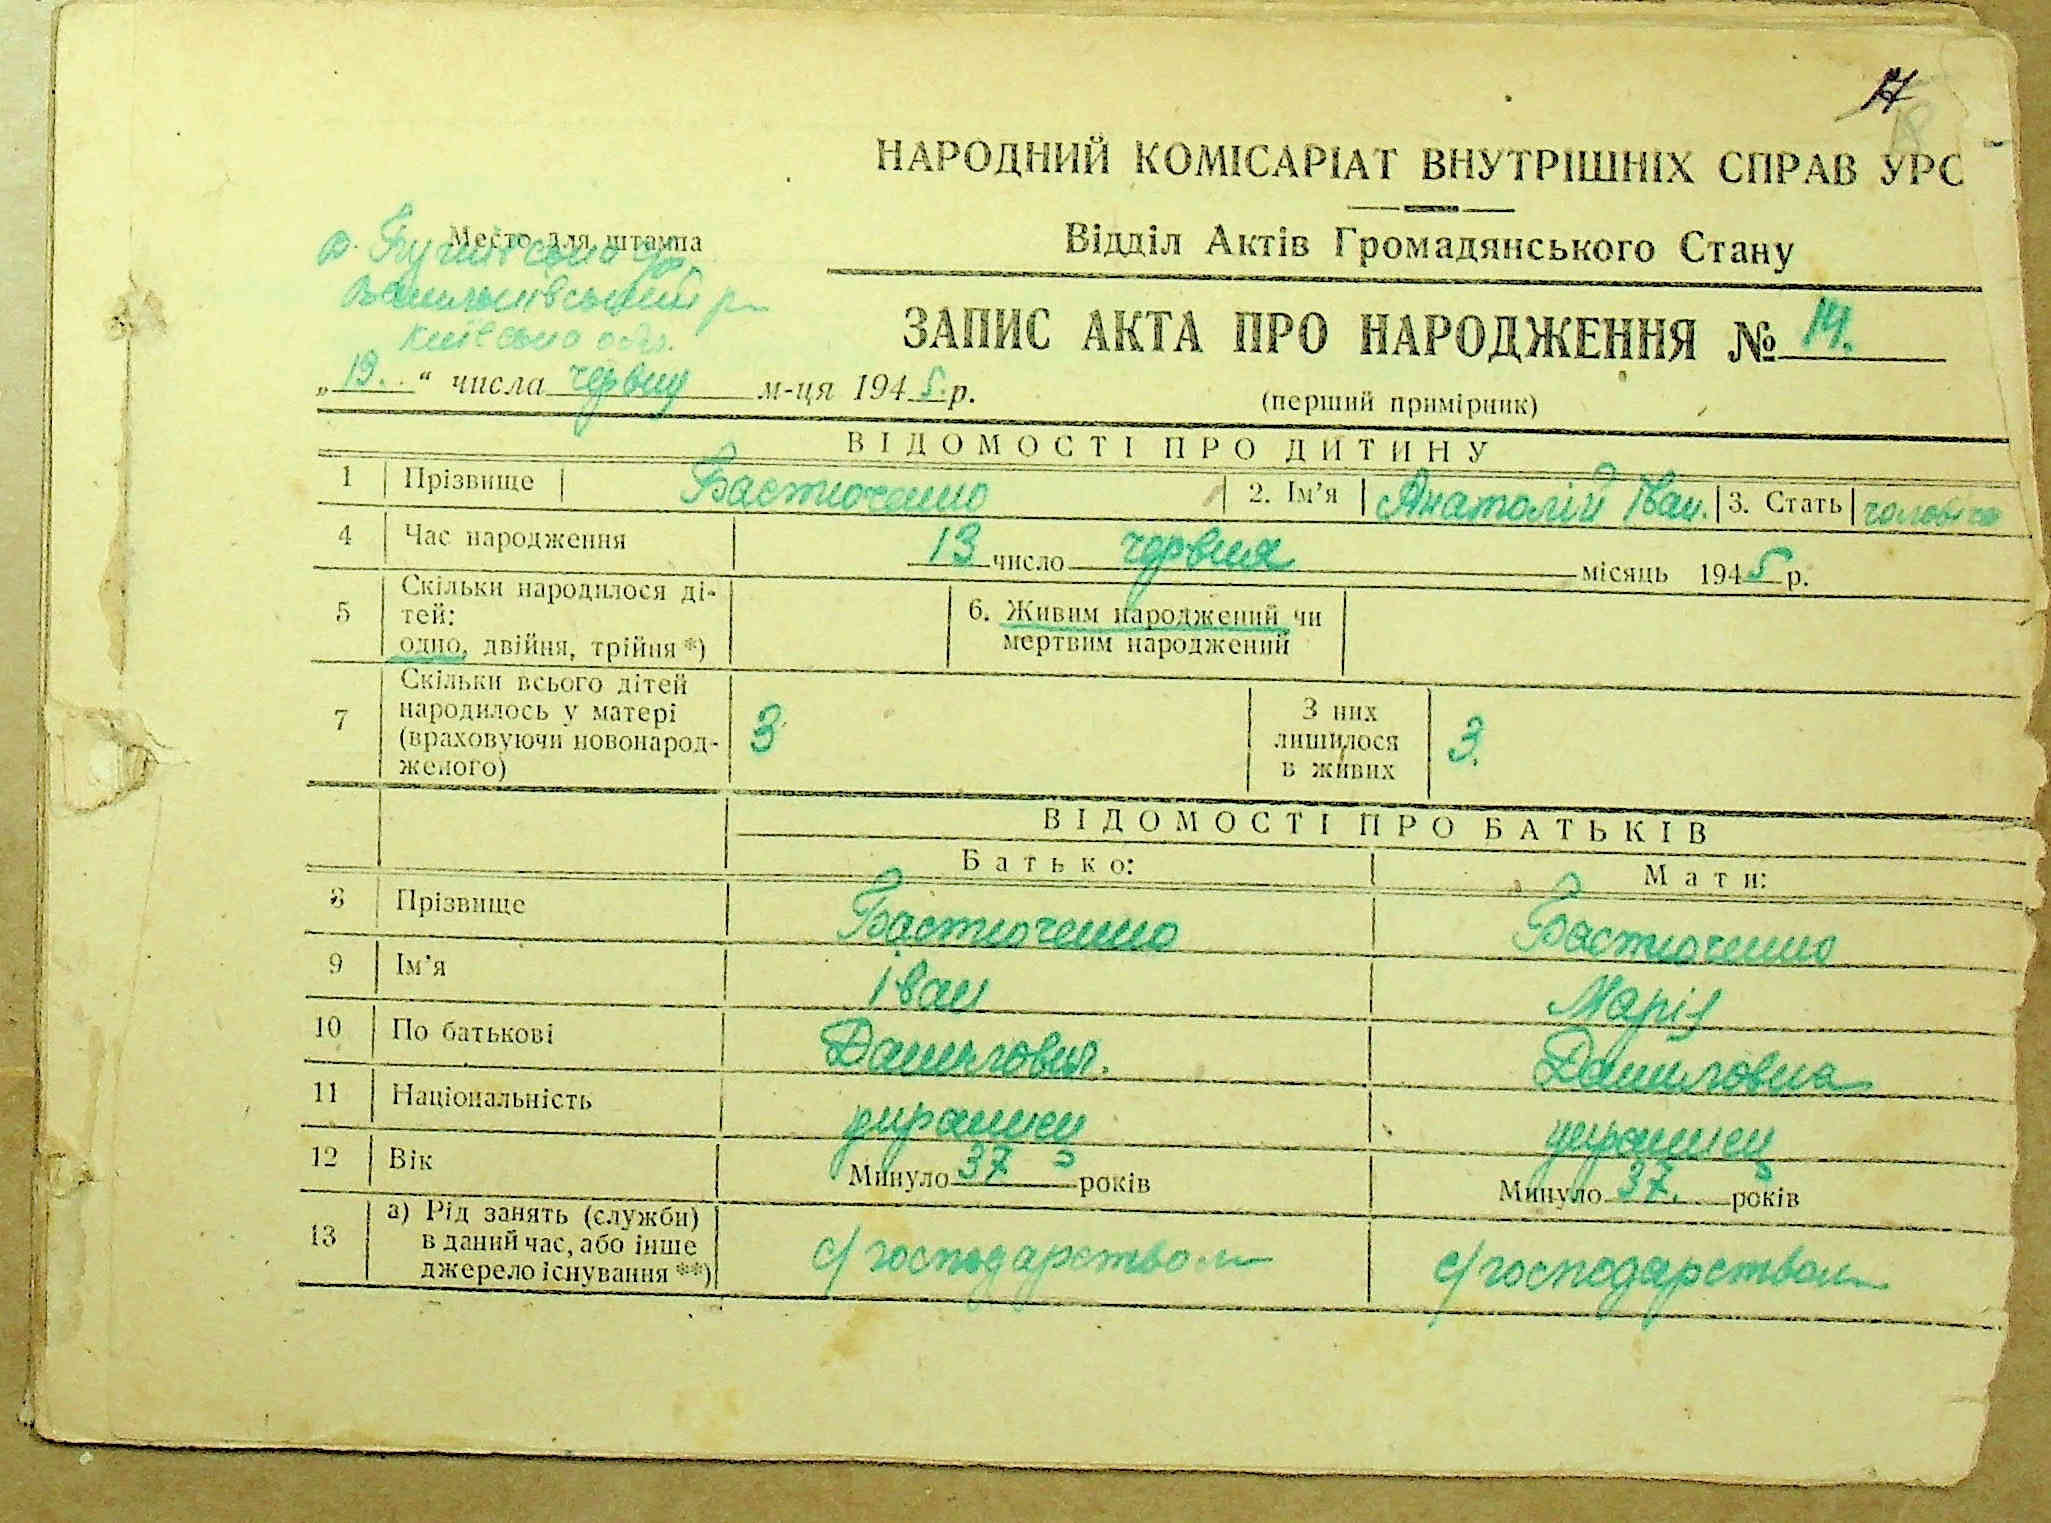 17
18
НАРОДНИЙ КОМІСАРІАТ ВНУТРІШНІХ СПРАВ УРС
Место для штампа
Відділ Актів Громадянського Стану
Васильківський р-н
Київська обл.
ЗАПИС АКТА ПРО НАРОДЖЕННЯ № 14.
„19.“ числа червня м-ця 1945.р.
(перший примірник)
ВІДОМОСТІ ПРО ДИТИНУ
1 Прізвище Бастюченко 2. Ім’я Анатолій Іван. 3. Стать чоловіча
4 Час народження 13 число червня місяць 1945 р.
5 Скільки народилося ді-
тей:
одно, двійня, трійня *)
6. Живим народжений чи
мертвим народжений
7 Скільки всього дітей
народилось у матері
(враховуючи новонарод-
женого)
3
З них
лишилося
в живих
3.
ВІДОМОСТІ ПРО БАТЬКІВ
Батько: Мати:
8 Прізвище Бастюченко Бастюченко
9 Ім’я Іван Марія
10 По батькові Данилович. Даниловна
11 Національність українец українец
12 Вік Минуло 37 років Минуло 37. років
13 а) Рід занять (служби)
в даний час, або інше
джерело існування **)
с/господарством с/господарством